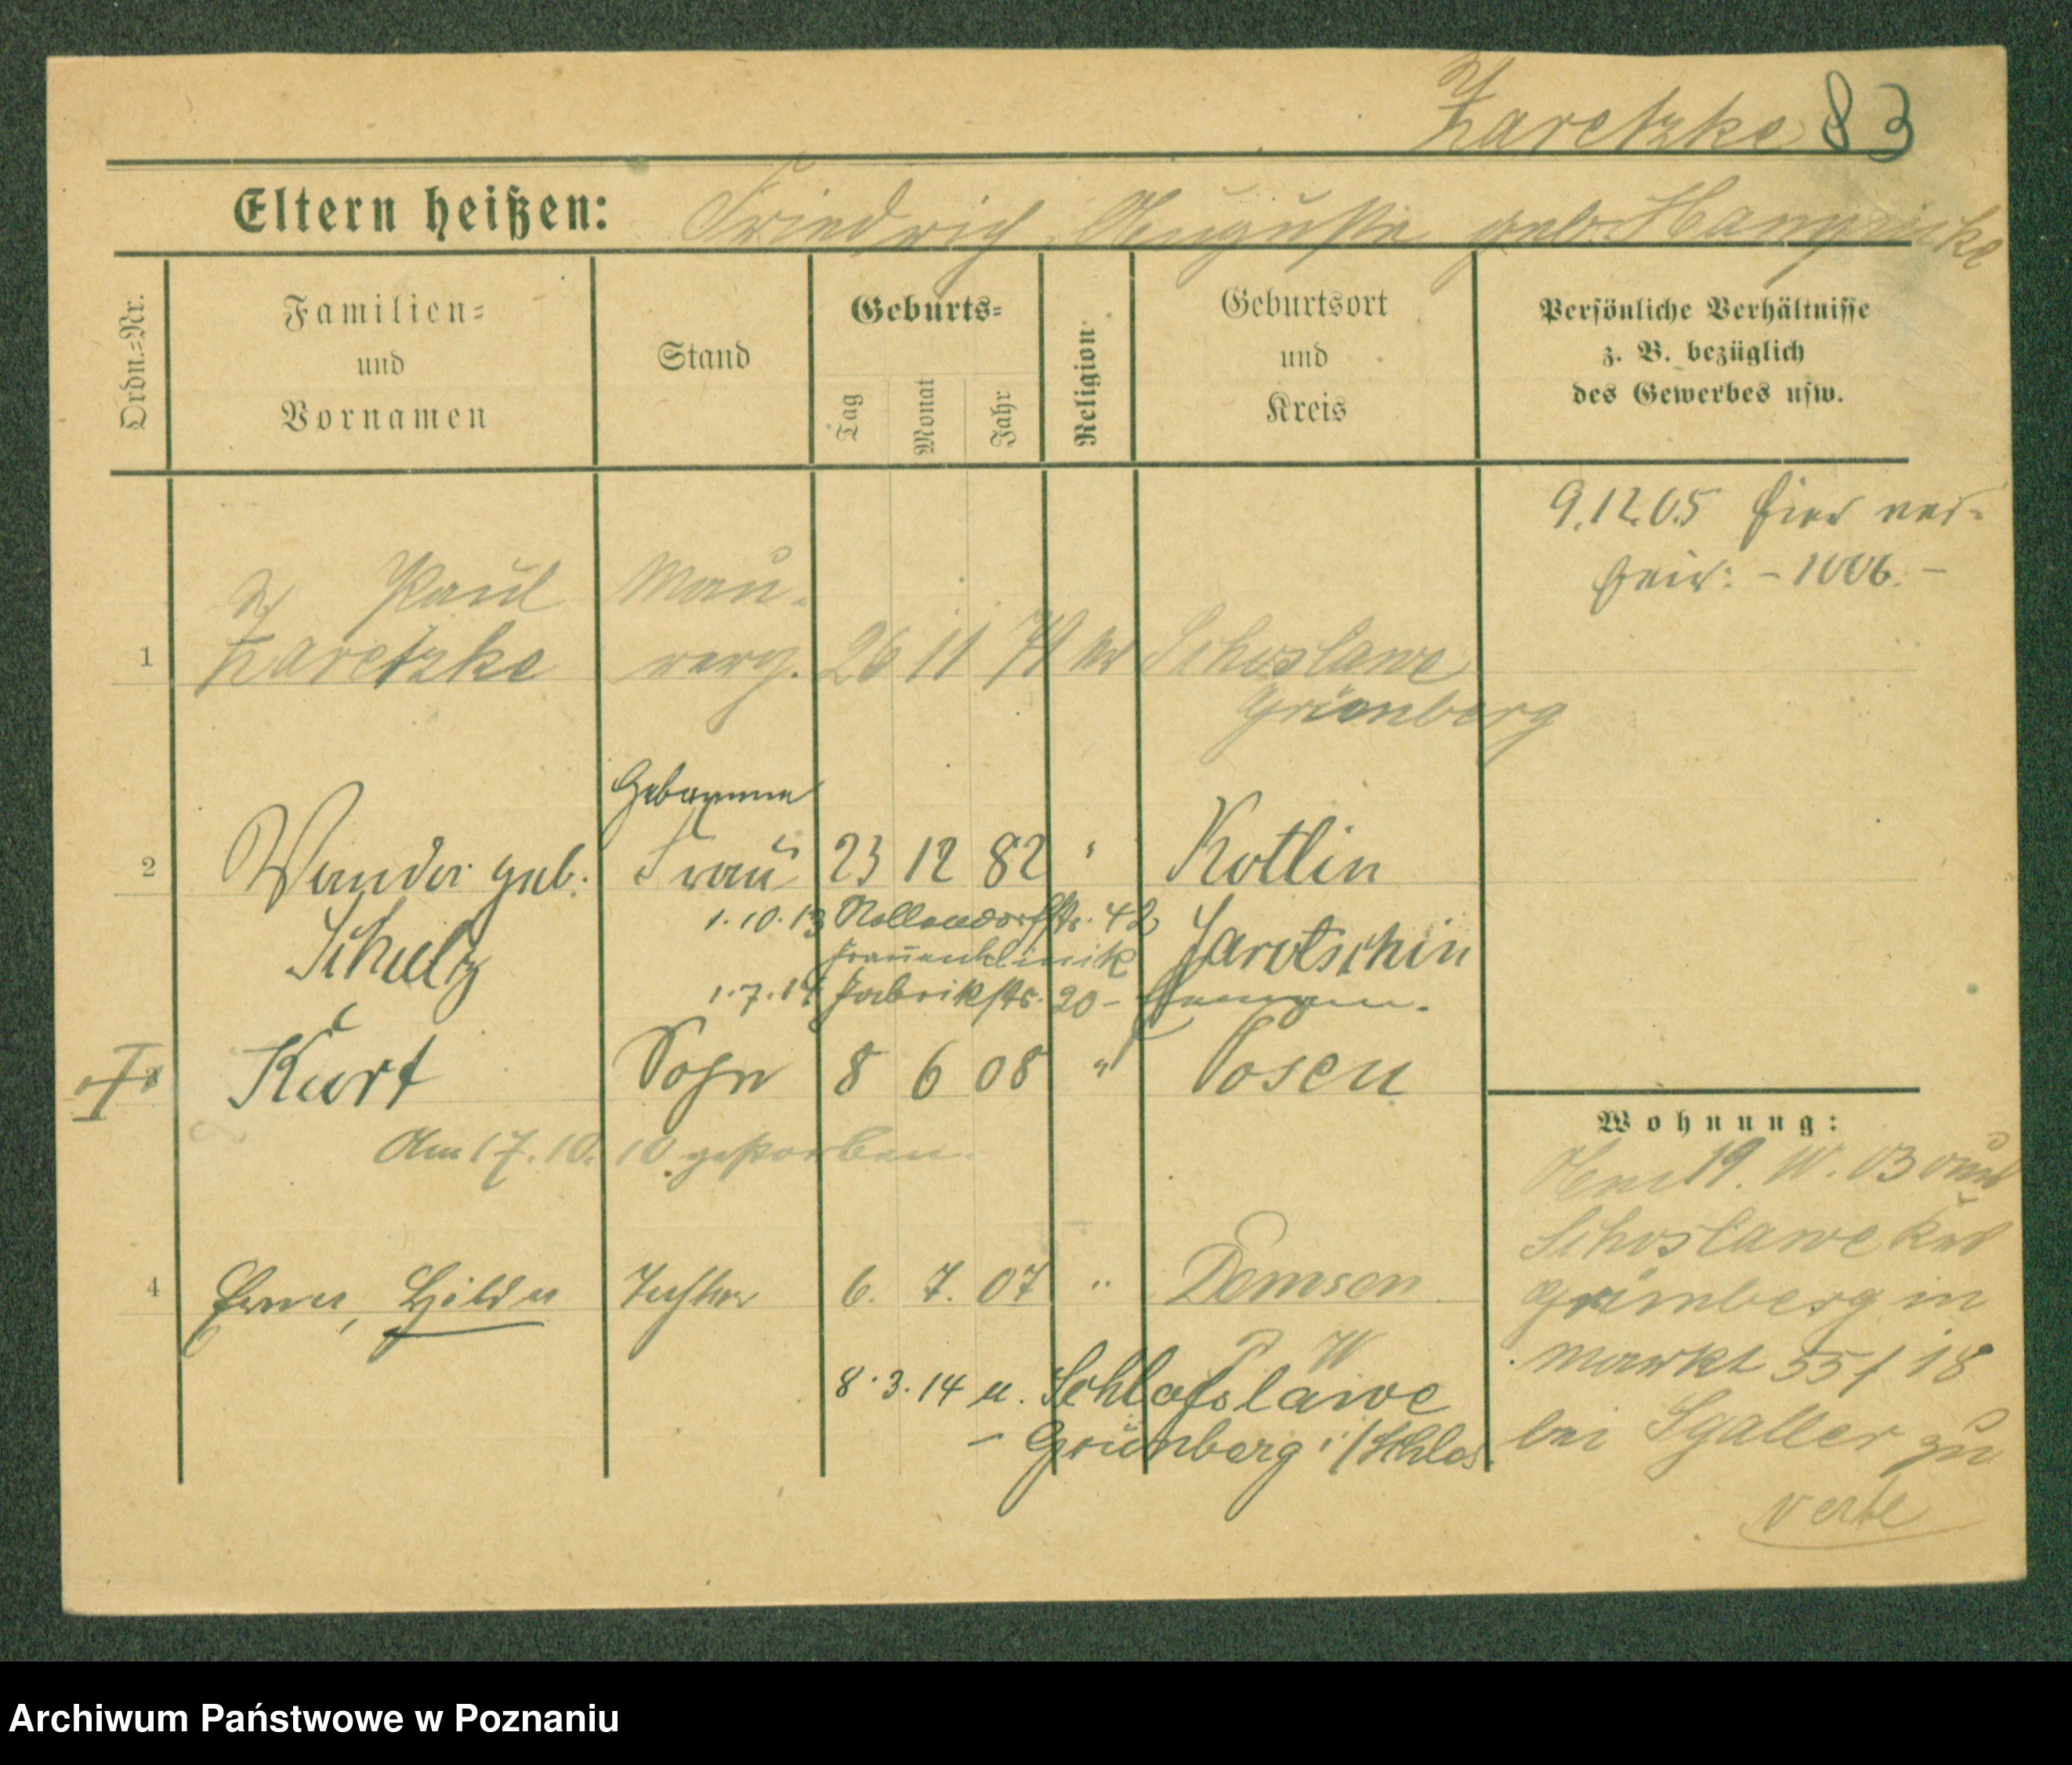 Zaretzke 83
Eltern heißen: Friedrich, Auguste geb. Hampicke
Ordn.=Nr.
Familien=
und
Vornamen
Stand
Geburts=
Tag
Monat
Jahr
Religion
Geburtsort
und
Kreis
Persönliche Verhältnisse
z. B. bezüglich
des Gewerbes usw.
9.12.05 hier ver=
heir: - 1006. -
Paul Mau=
1 Zaretzke rerg. 26 11 71 Schoslawe
Grünberg
Hebamme
2 Wanda geb. Frau 23 12 82 " Kotlin
Schulz
1.10.13 Nollendorfstr. 42
Jarotschin
Frauenklinik
1.7.14 Fabrikstr. 20 -
Kurt Sohn 8 6 08 " Posen
Am 17.10.10 gestorben.
4 Erna, Hilda Tochter 6. 7. 07 " Demsen
P. W
8.3.14 u. Schloßlawe
- Grünberg i/Schles.
Wohnung:
19. 03
Schoslawe
Grünberg in
Markt 55 / 18
bei Sgaller zu
Archiwum Państwowe w Poznaniu